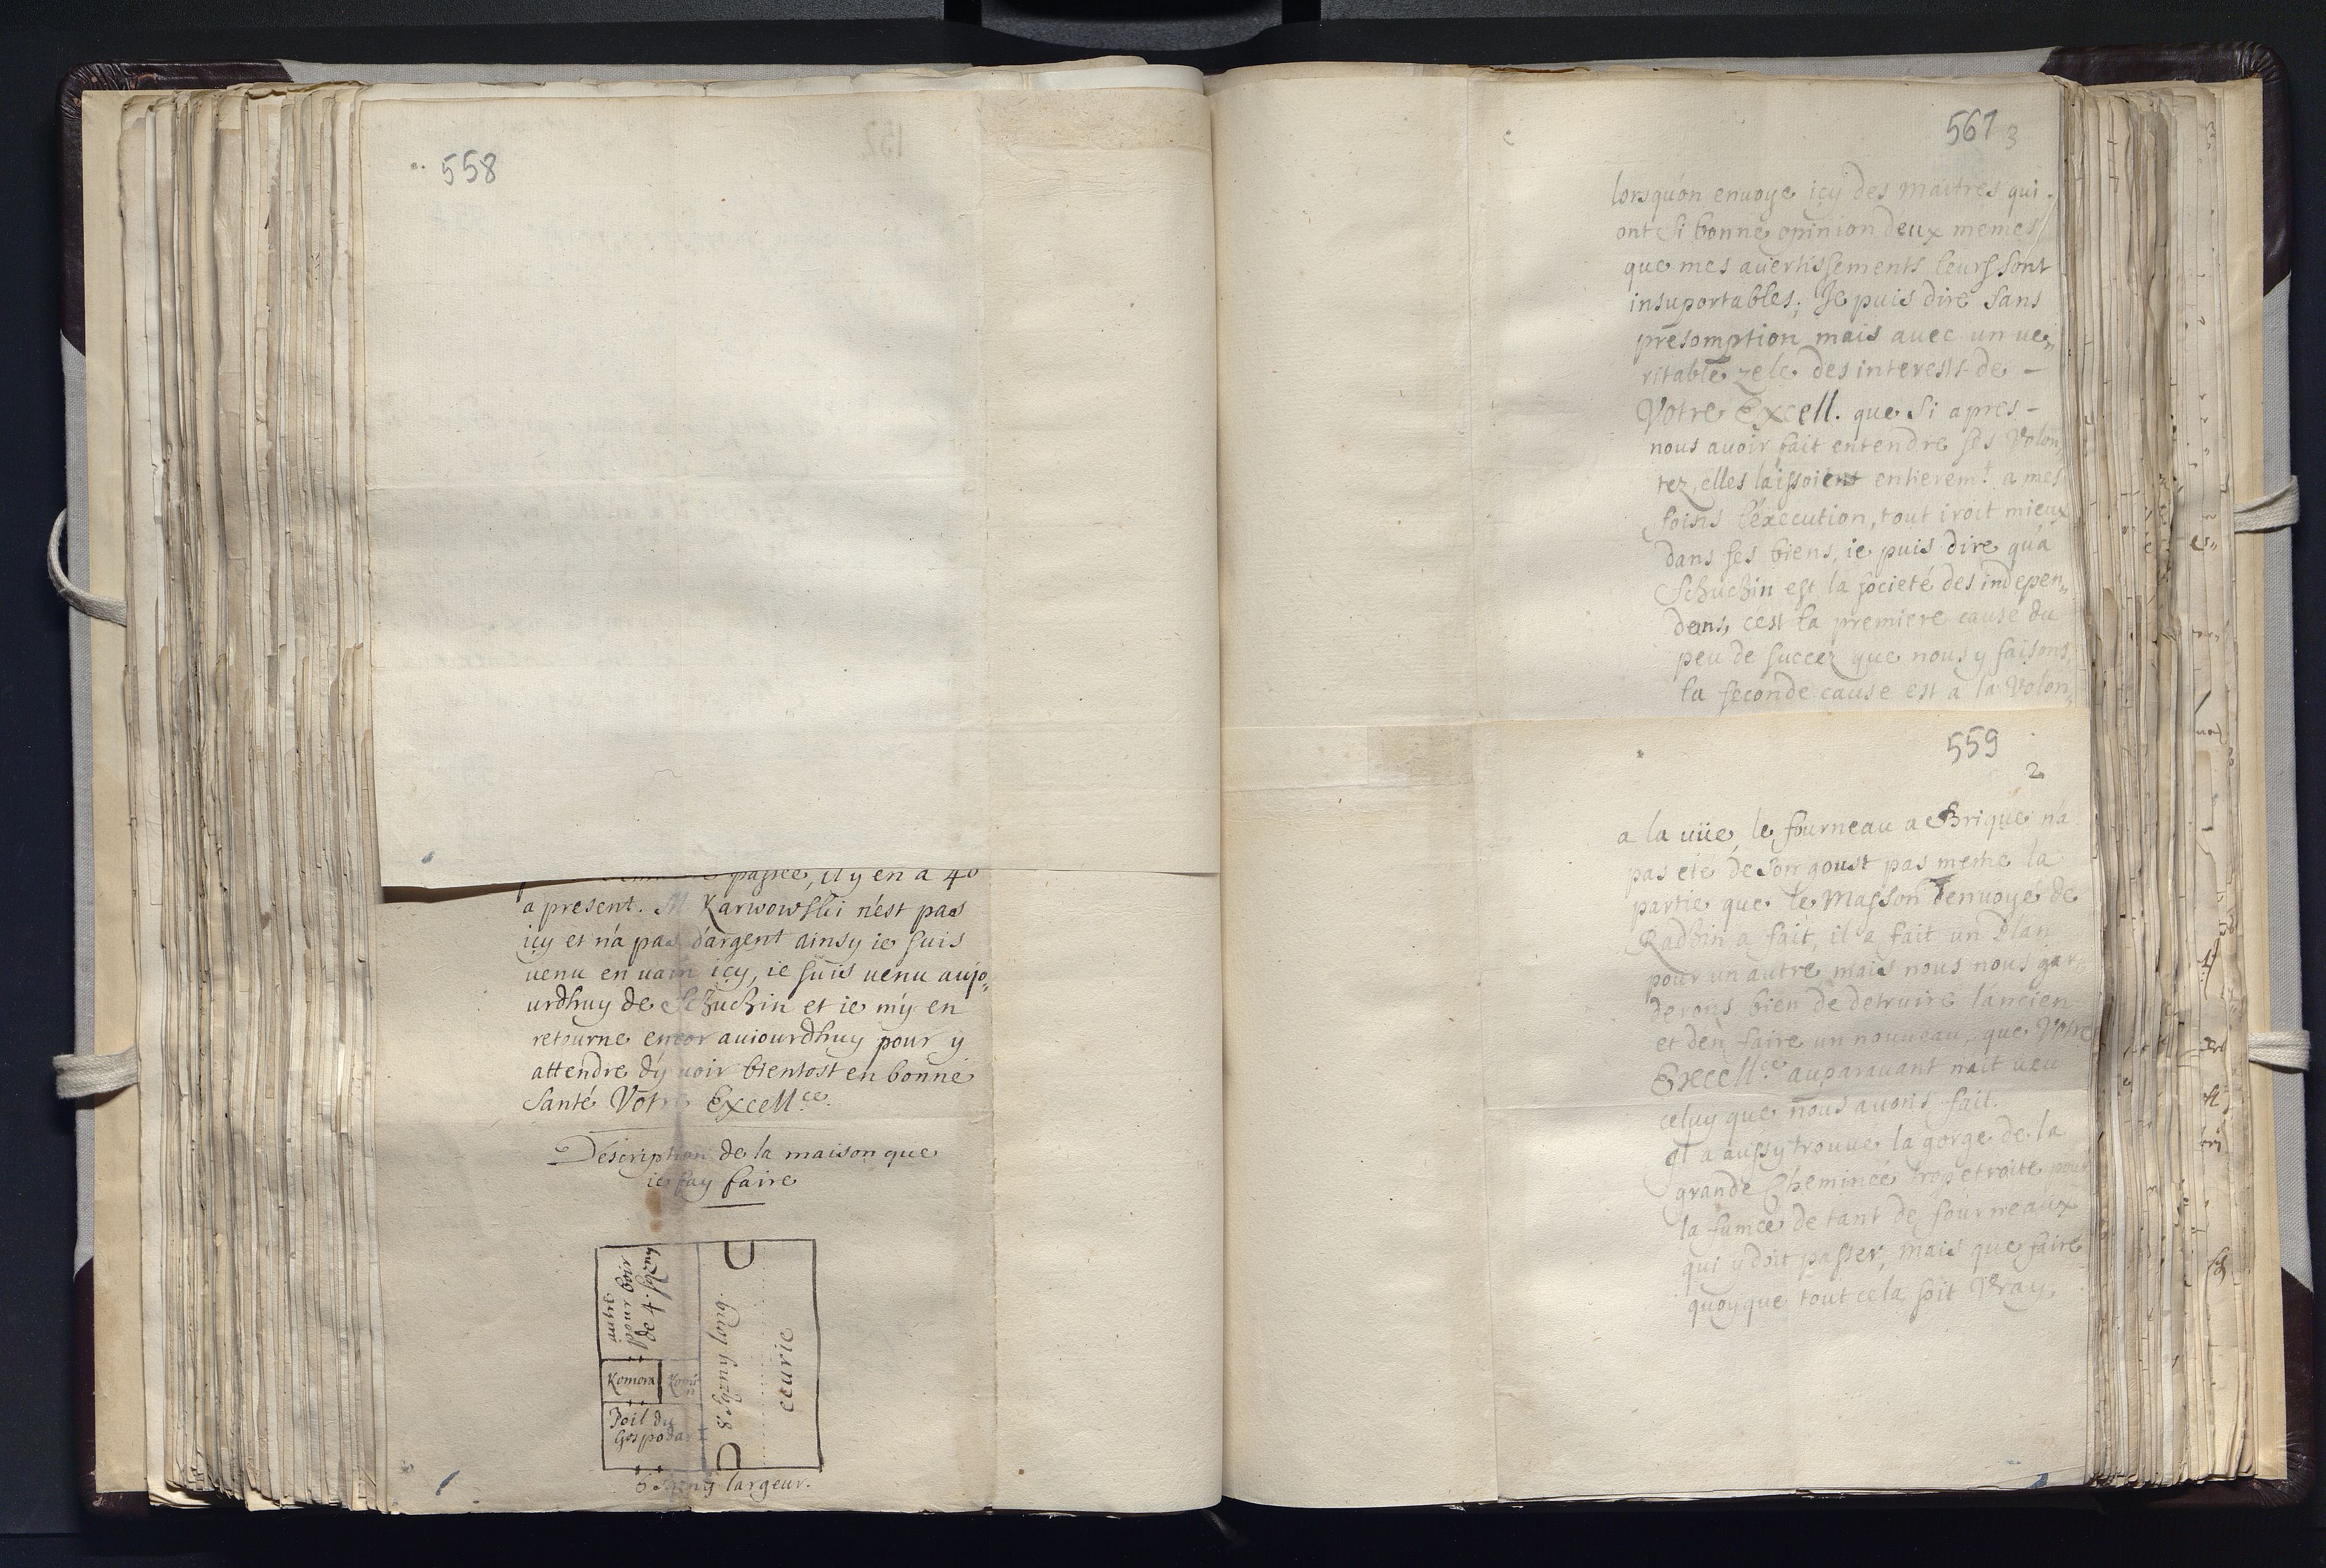 558
passée, il y en a 40
a present. M Karwowski n'est pas
icy et n'a pas d'argent ainsy ie suis
venu en vain icy, ie suis venu aujo„
urdhuy de Schuchin et ie m'y en
retourne encor auiourdhuy pour y
attendre d'y voir bientost en bonne
santé Votre Excell.ce
Description de la maison que
ie fay faire
autre
pour boir
de 4. sązny
Komora
Poil du
Gospodar
8 sązny long.
ecurie
6 sązny largeur.
567 3
lorsqu'on enuoye icy des maitres qui
ont si bonne opinion deux memes
que mes auertissements leurs sont
insuportables; Je puis dire sans
presomption mais auec un ue„
ritable zele des interests de –
Votre Excell. que si apres –
nous auoir fait entendre ses Volon„
tez, elles laissoient entierem.t a mes
soins l'execution, tout iroit mieux
dans ses biens, ie puis dire qu'a
Schuchin est la societé des indepen„
dens, c'est la premiere cause du
peu de succez que nous y faisons,
la seconde cause est a la Volon„
559
2
a la uüe, le fourneau a Brique n'a
pas eté de son goust pas meme la
partie que le Masson enuoyé de
Radzin a fait, il a fait un Plan
pour un autre mais nous nous gar„
derons bien de detruire l'ancien
et d'en faire un nouueau, que Votre
Excell.ce auparauant n'ait ueu
celuy que nous auons fait.
Il a aussy trouué la gorge de la
grande Cheminée trop etroite pour
la fumée de tant de fourneaux
qui y doit passer, mais que faire
quoyque tout cela soit Vray